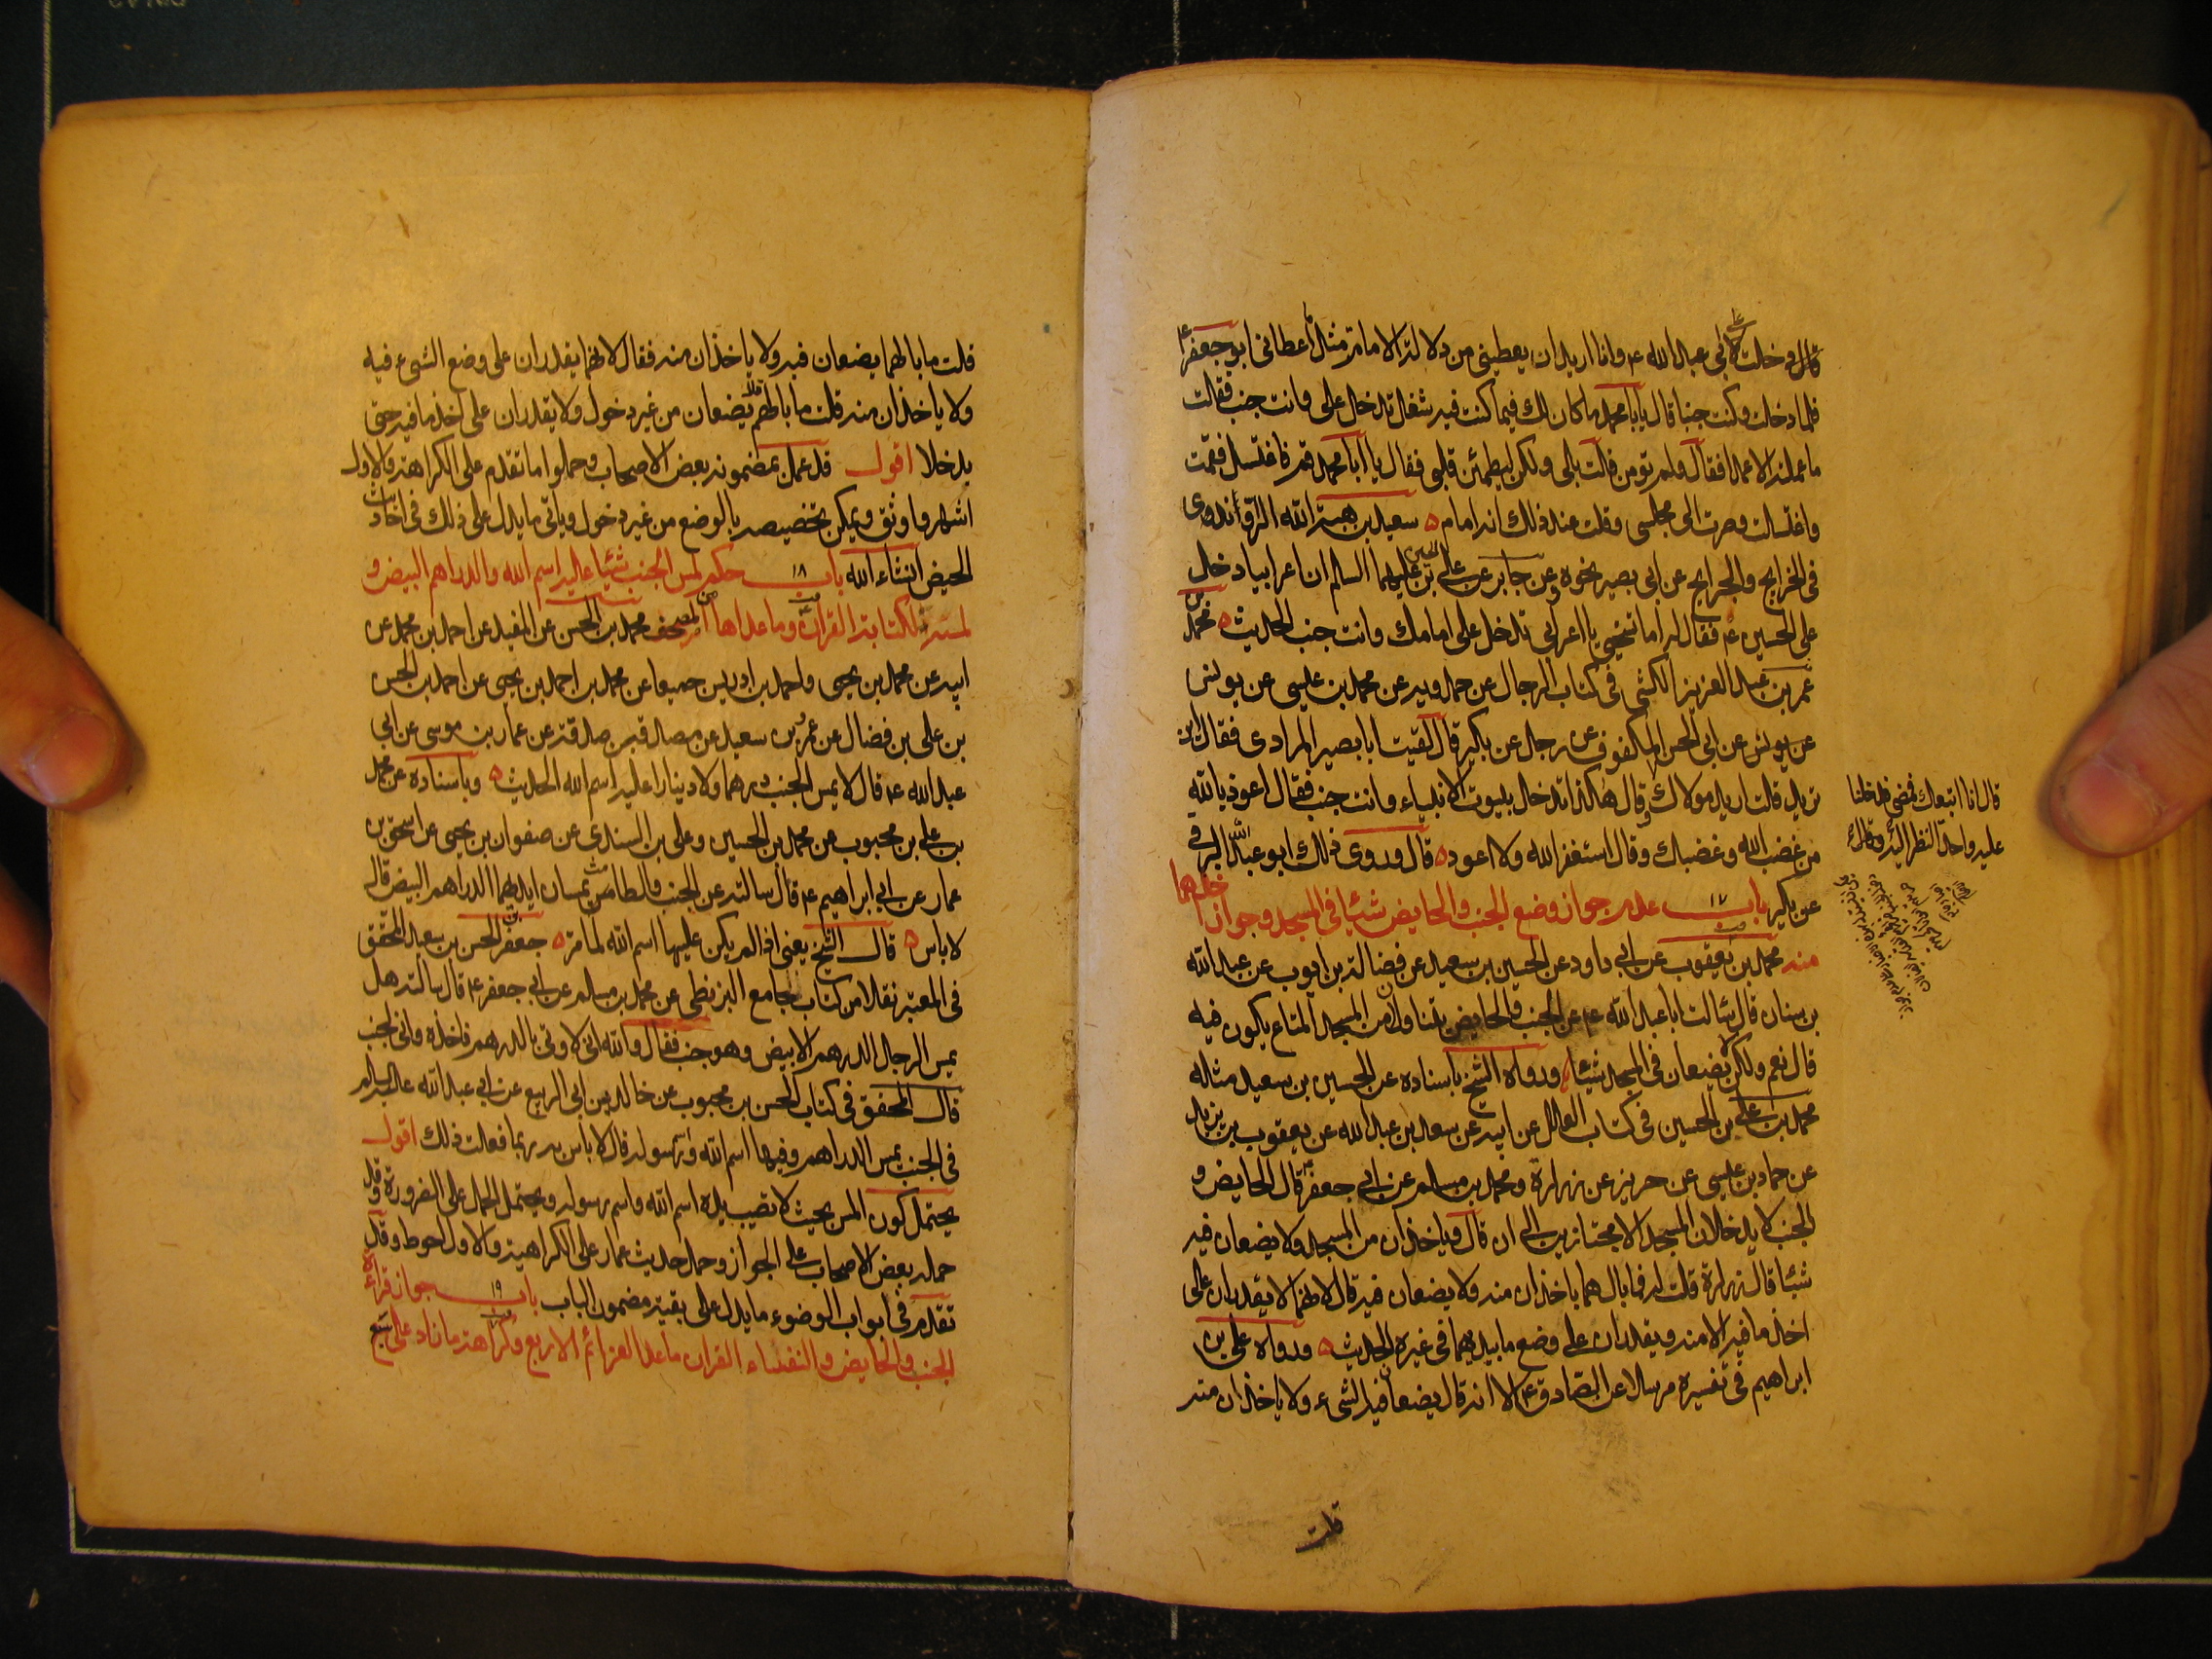 قال دخلت على ابي عبد الله ع وانا اريد ان يعطيني من دلالة الامامة مثل ما اعطاني ابو جعفر ع
فلما دخلت وكنت جنبا قال يابا محمد ما كان لك فيما كنت فيه شغل تدخل علي وانت جنب فقلت
ما عملته الا عمدا فقال اولم تؤمن قلت بلى ولكن ليطمئن قلبي فقال يا ابا محمد قم فاغتسل فقمت
واغتسلت وصرت الى مجلسي وقلت عند ذلك انه امام ه سعيد بن هبة الله الراوندي
في الخرايج والجرايح عن ابي بصير نحوه وعن جابر عن علي بن الحسين عليهما السلم ان اعرابيا دخل
على الحسين ع فقال له اما تستحيي يا اعرابي تدخل على امامك وانت جنب الحديث ه محمد بن
عمر بن عبد العزيز الكشي في كتاب الرجال عن حمدويه عن محمد بن عيسى عن يونس
عن يونس عن ابي الحسن المكفوف عن رجل عن بكير قال لقيت ابا بصير المرادي فقال اين
تريد قلت اريد مولاك وقال هكذا تدخل بيوت الانبياء وانت جنب فقال اعوذ بالله
من غضب الله وغضبك وقال استغفر الله ولا اعود ه قال وروى ذلك ابو عبد الله البرقي
عن بكير باب ١٧ عدم جواز وضع الجنب والحايض شيئا في المسجد وجواز اخذهما
منه محمد بن يعقوب عن ابي داود عن الحسين بن سعيد عن فضالة بن ايوب عن عبد الله
بن سنان قال سئالت ابا عبد الله ع عن الجنب والحايض يتناولان من المسجد المتاع يكون فيه
قال نعم ولكن لا يضعان في المسجد شيئا ه ورواه الشيخ باسناده عن الحسين بن سعيد مثله
محمد بن علي بن الحسين في كتاب العلل عن ابيه عن سعد بن عبد الله عن يعقوب بن يزيد
عن حماد بن عيسى عن حريز عن زرارة ومحمد بن مسلم عن ابي جعفر ع قال الحايض و
الجنب لا يدخلان المسجد الا مجتازين الى ان قال وياخذان من المسجد ولا يضعان فيه
شيئا قال زرارة قلت له فما بالهما ياخذان منه ولا يضعان فيه قال لانهما لا يقدران على
اخذ ما فيه الا منه ويقدران على وضع ما بيدهما في غيره الحديث ه ورواه علي بن
ابراهيم في تفسيره مرسلا عن الصادق ع الا انه قال يضعان فيه الشيء ولا ياخذان منه
قلت
قال انا اتبعك فمضى فدخلنا
عليه واحد النظر اليه وقال
قلت ما بالهما يضعان فيه ولا ياخذان منه فقال لانهما يقدران على وضع الشيء فيه
ولا ياخذان منه قلت ما بالهما يضعان من غير دخول ولا يقدران على اخذ ما فيه حتى
يدخلا اقول قد عمل بمضمونه بعض الاصحاب وحملوا ما تقدم على الكراهة والاول
اشهر واوثق ويمكن تخصيصه بالوضع من غير دخول وياتي ما يدل على ذلك في احاديث
الحيض انشاء الله باب ١٨ حكم لمس الجنب شيئا عليه اسم الله والدراهم البيض و
لمسه لكتابة القران وما عداها من المصحف محمد بن الحسن عن المفيد عن احمد بن محمد عن
ابيه عن محمد بن يحيى واحمد بن ادريس جميعا عن محمد بن احمد بن يحيى عن احمد بن الحسن
بن علي بن فضال عن عمرو بن سعيد عن مصدق بن صدقة عن عمار بن موسى عن ابي
عبد الله ع قال لا يمس الجنب درهما ولا دينارا عليه اسم الله الحديث ه وباسناده عن محمد
بن علي بن محبوب عن محمد بن الحسين وعلي بن السندي عن صفوان بن يحيى عن اسحق بن
عمار عن ابي ابراهيم ع قال سالته عن الجنب والطامث يمسان ايديهما الدراهم البيض قال
لا باس ه قال الشيخ يعني اذا لم يكن عليها اسم الله لما مر ه جعفر بن الحسن بن سعيد المحقق
في المعتبر نقلا من كتاب جامع البزنطي عن محمد بن مسلم عن ابي جعفر ع قال سالته هل
يمس الرجل الدرهم الابيض وهو جنب فقال والله اني لاوتى بالدرهم فاخذه واني لجنب
قال المحقق وفي كتاب الحسن بن محبوب عن خالد عن ابي الربيع عن ابي عبد الله عليه السلم
في الجنب يمس الدراهم وفيها اسم الله واسم رسوله قال لا باس به ربما فعلت ذلك اقول
يحتمل كون المس بحيث لا تصيب يده اسم الله واسم رسوله ويحتمل الحمل على الضرورة وقد
حمله بعض الاصحاب على الجواز وحمل حديث عمار على الكراهية والاول احوط وقد
تقدم في ابواب الوضوء ما يدل على بقية مضمون الباب باب ١٩ جواز قراءة
الجنب والحايض والنفساء القران ما عدا العزائم الاربع وكراهة ما زاد على سبع